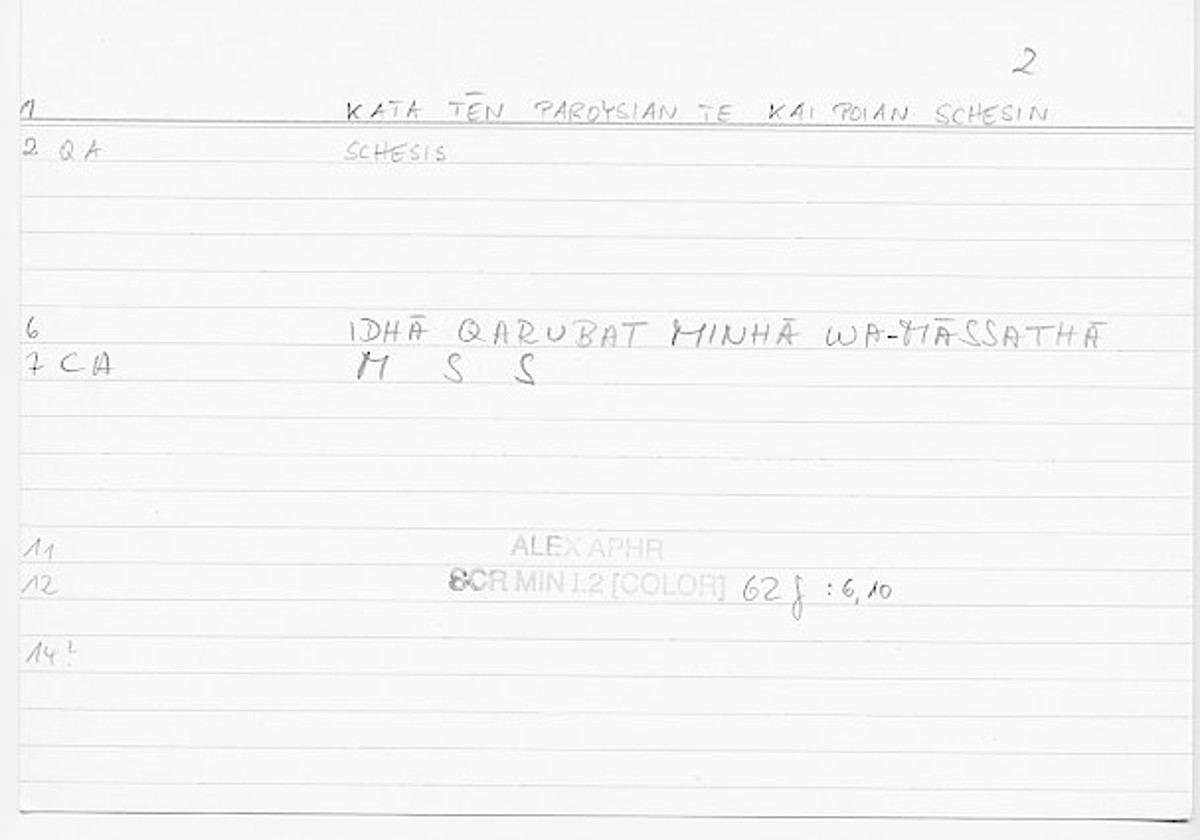 2
1 KATA TĒN PAROYSIAN TE KAI POIAN SCHESIN
2 QA SCHESIS
6 IDHĀ QARUBAT MINHĀ WA-MĀSSATHĀ
7 CA M S S
11 ALEX APHR
12 SCR MIN I.2 [COLOR] 62 f : 6,10
14?